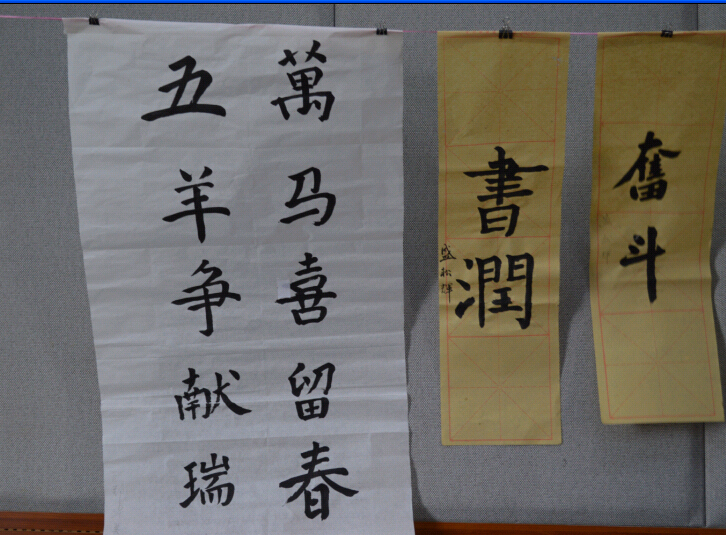 萬马喜留春
五羊争献瑞
書潤
盛松輝
奮斗